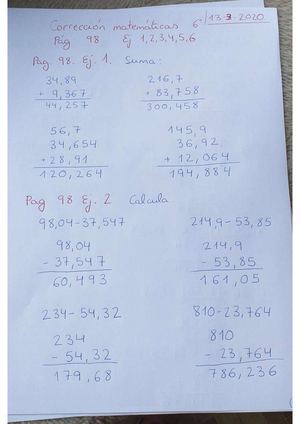 Corrección matemáticas 6º 13-3-2020
Pág 98 Ej 1,2,3,4,5,6
Pág 98. Ej. 1. Suma:
34,89 216,7
+ 9,367 + 83,758
44,257 300,458
56,7 145,9
34,654 36,92
+ 28,91 + 12,064
120,264 194,884
Pag 98 Ej. 2 Calcula
98,04-37,547 214,9-53,85
98,04 214,9
- 37,547 - 53,85
60,493 161,05
234-54,32 810-23,764
234 810
- 54,32 - 23,764
179,68 786,236